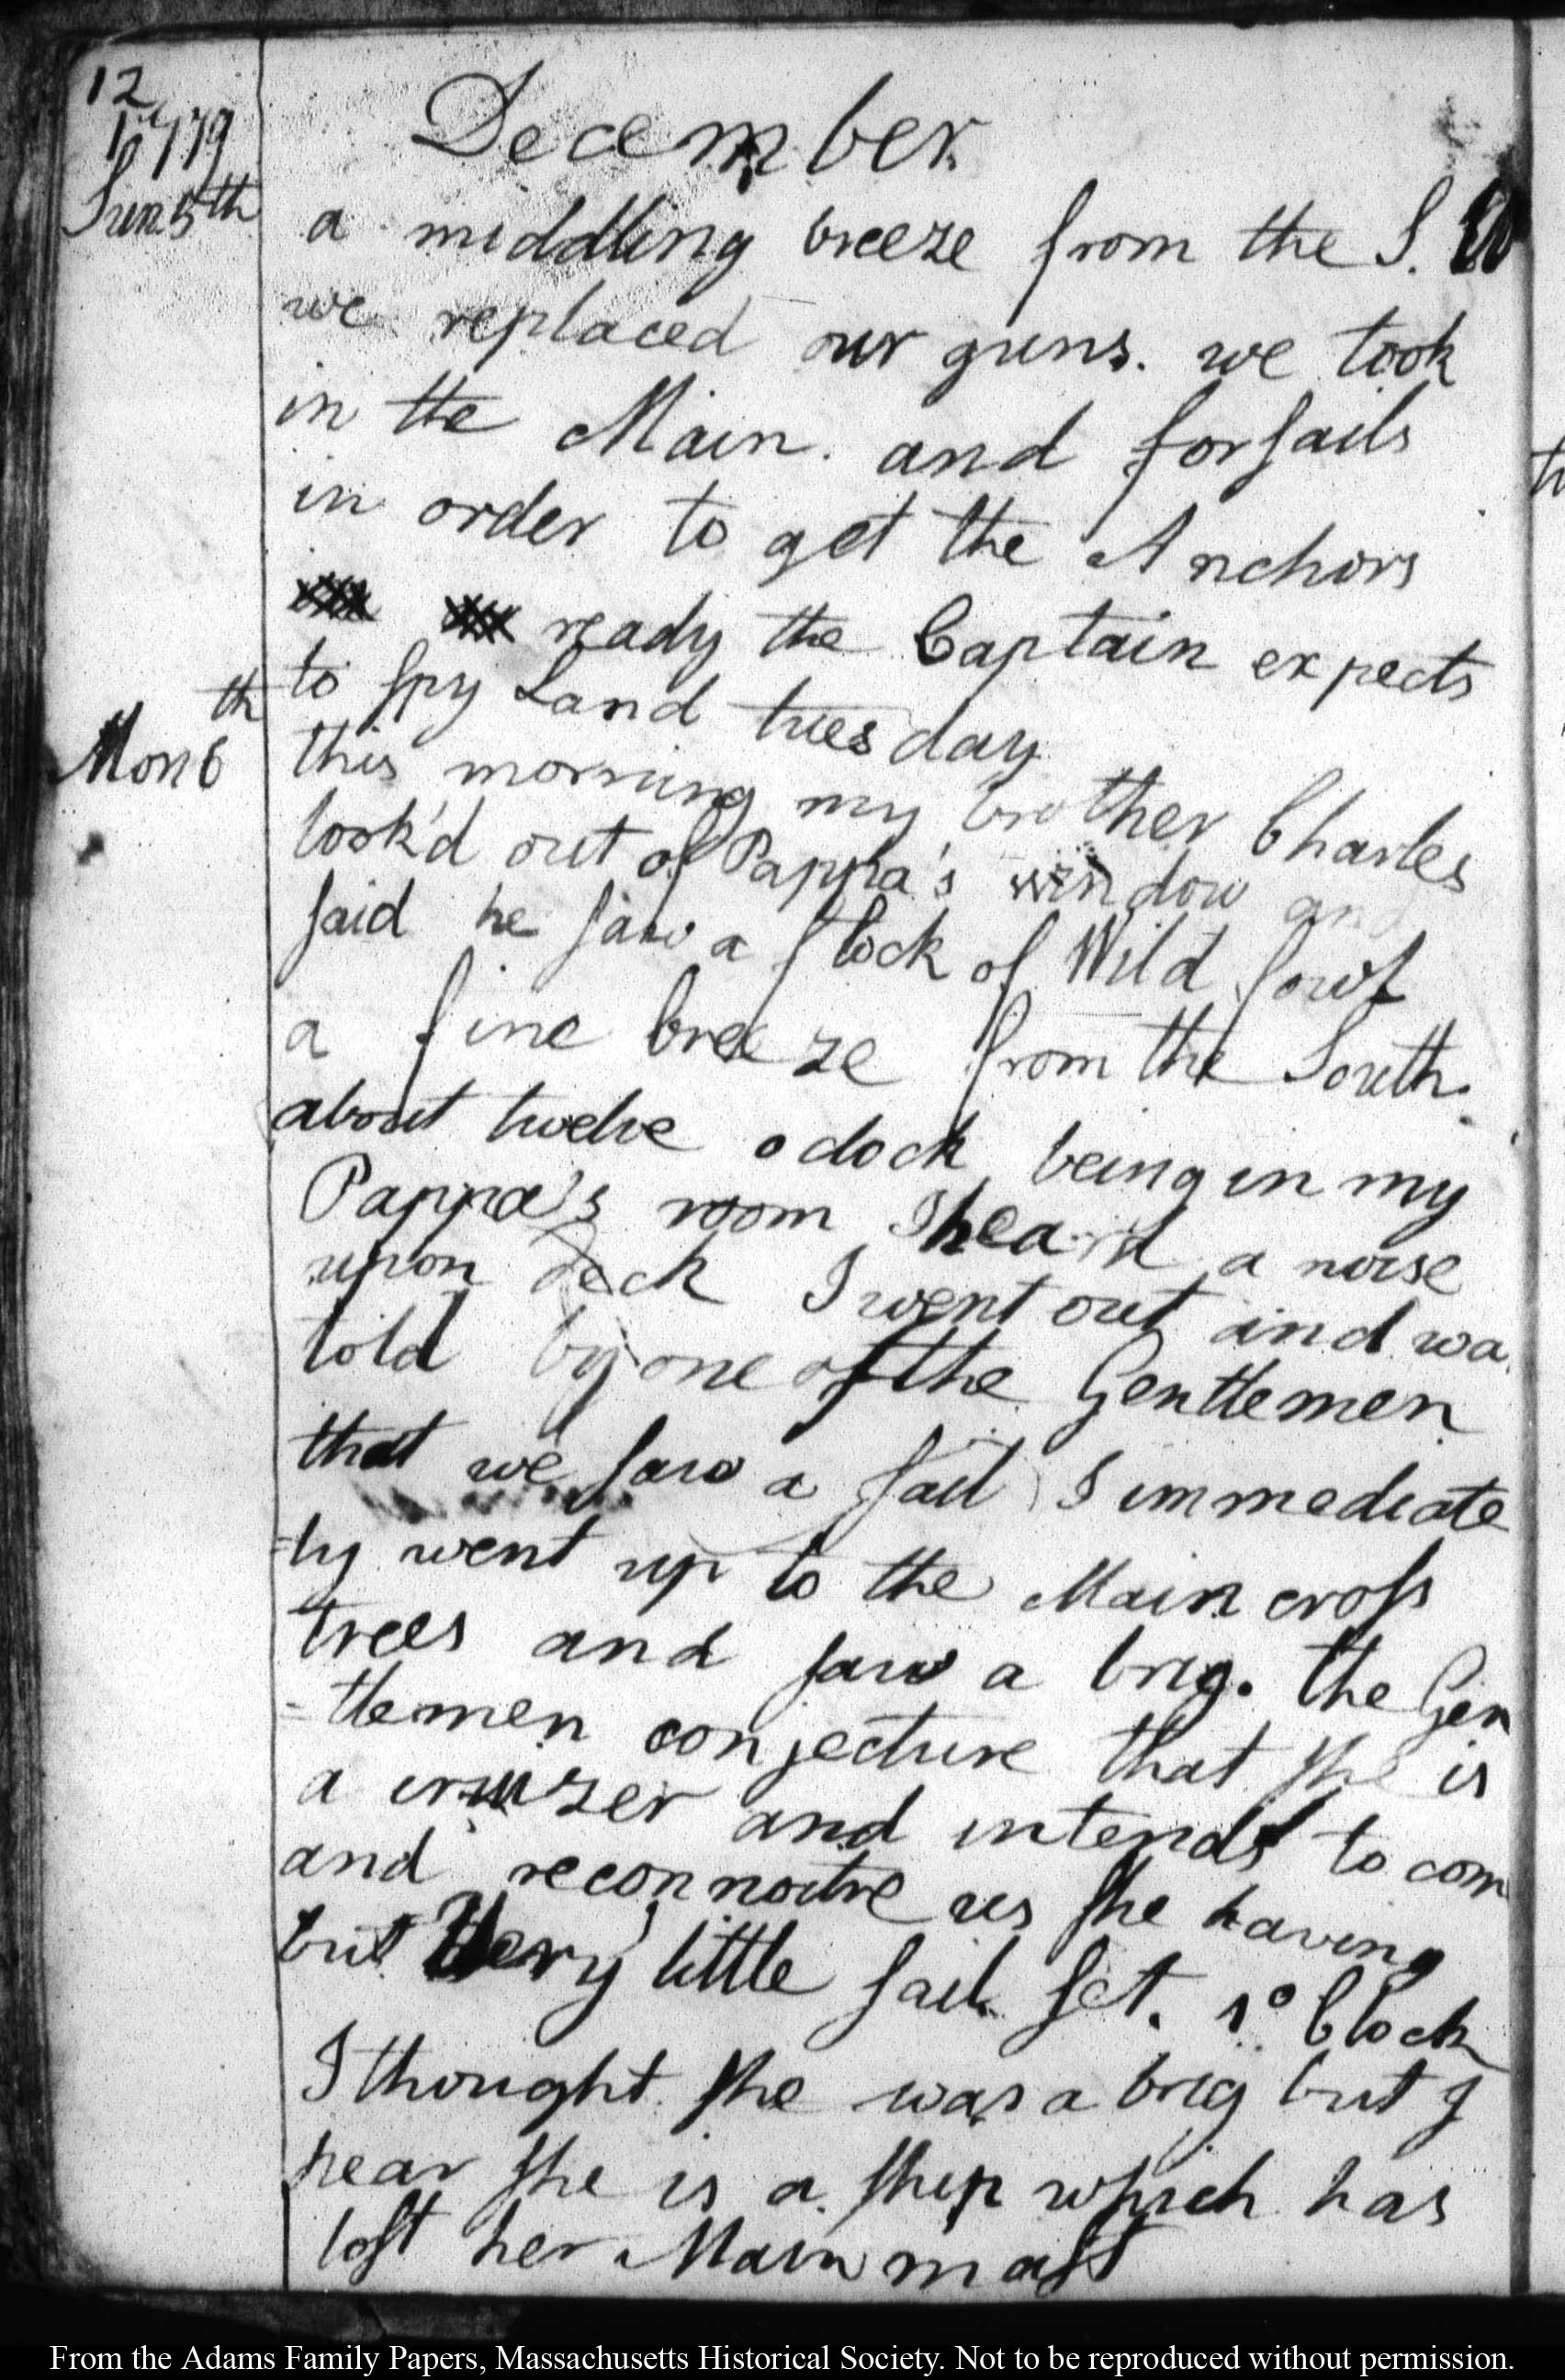 12
1779
December.
Sun 5th
a middling breeze from the S. W
we replaced our guns. we took
in the Main. and forsails
in order to get the Anchors
ready the Captain expects
to spy Land tuesday
Mon 6th
this morning my brother Charles
look'd out of Pappa's window and
said he saw a flock of Wild fowl
a fine breeze from the South.
about twelve o clock being in my
Pappa's room I heard a noise
upon deck I went out and wa
told by one of the Gentlemen
that we saw a sail I immediate
=ly went up to the Main cross
trees and saw a brig. the Gen
=tlemen conjecture that she is
a cruizer and intends to com
and reconnoitre us she having
but very little sail set. 1 o Clock
I thought she was a brig but I
hear she is a ship which has
lost her Main mast
From the Adams Family Papers, Massachusetts Historical Society. Not to be reproduced without permission.